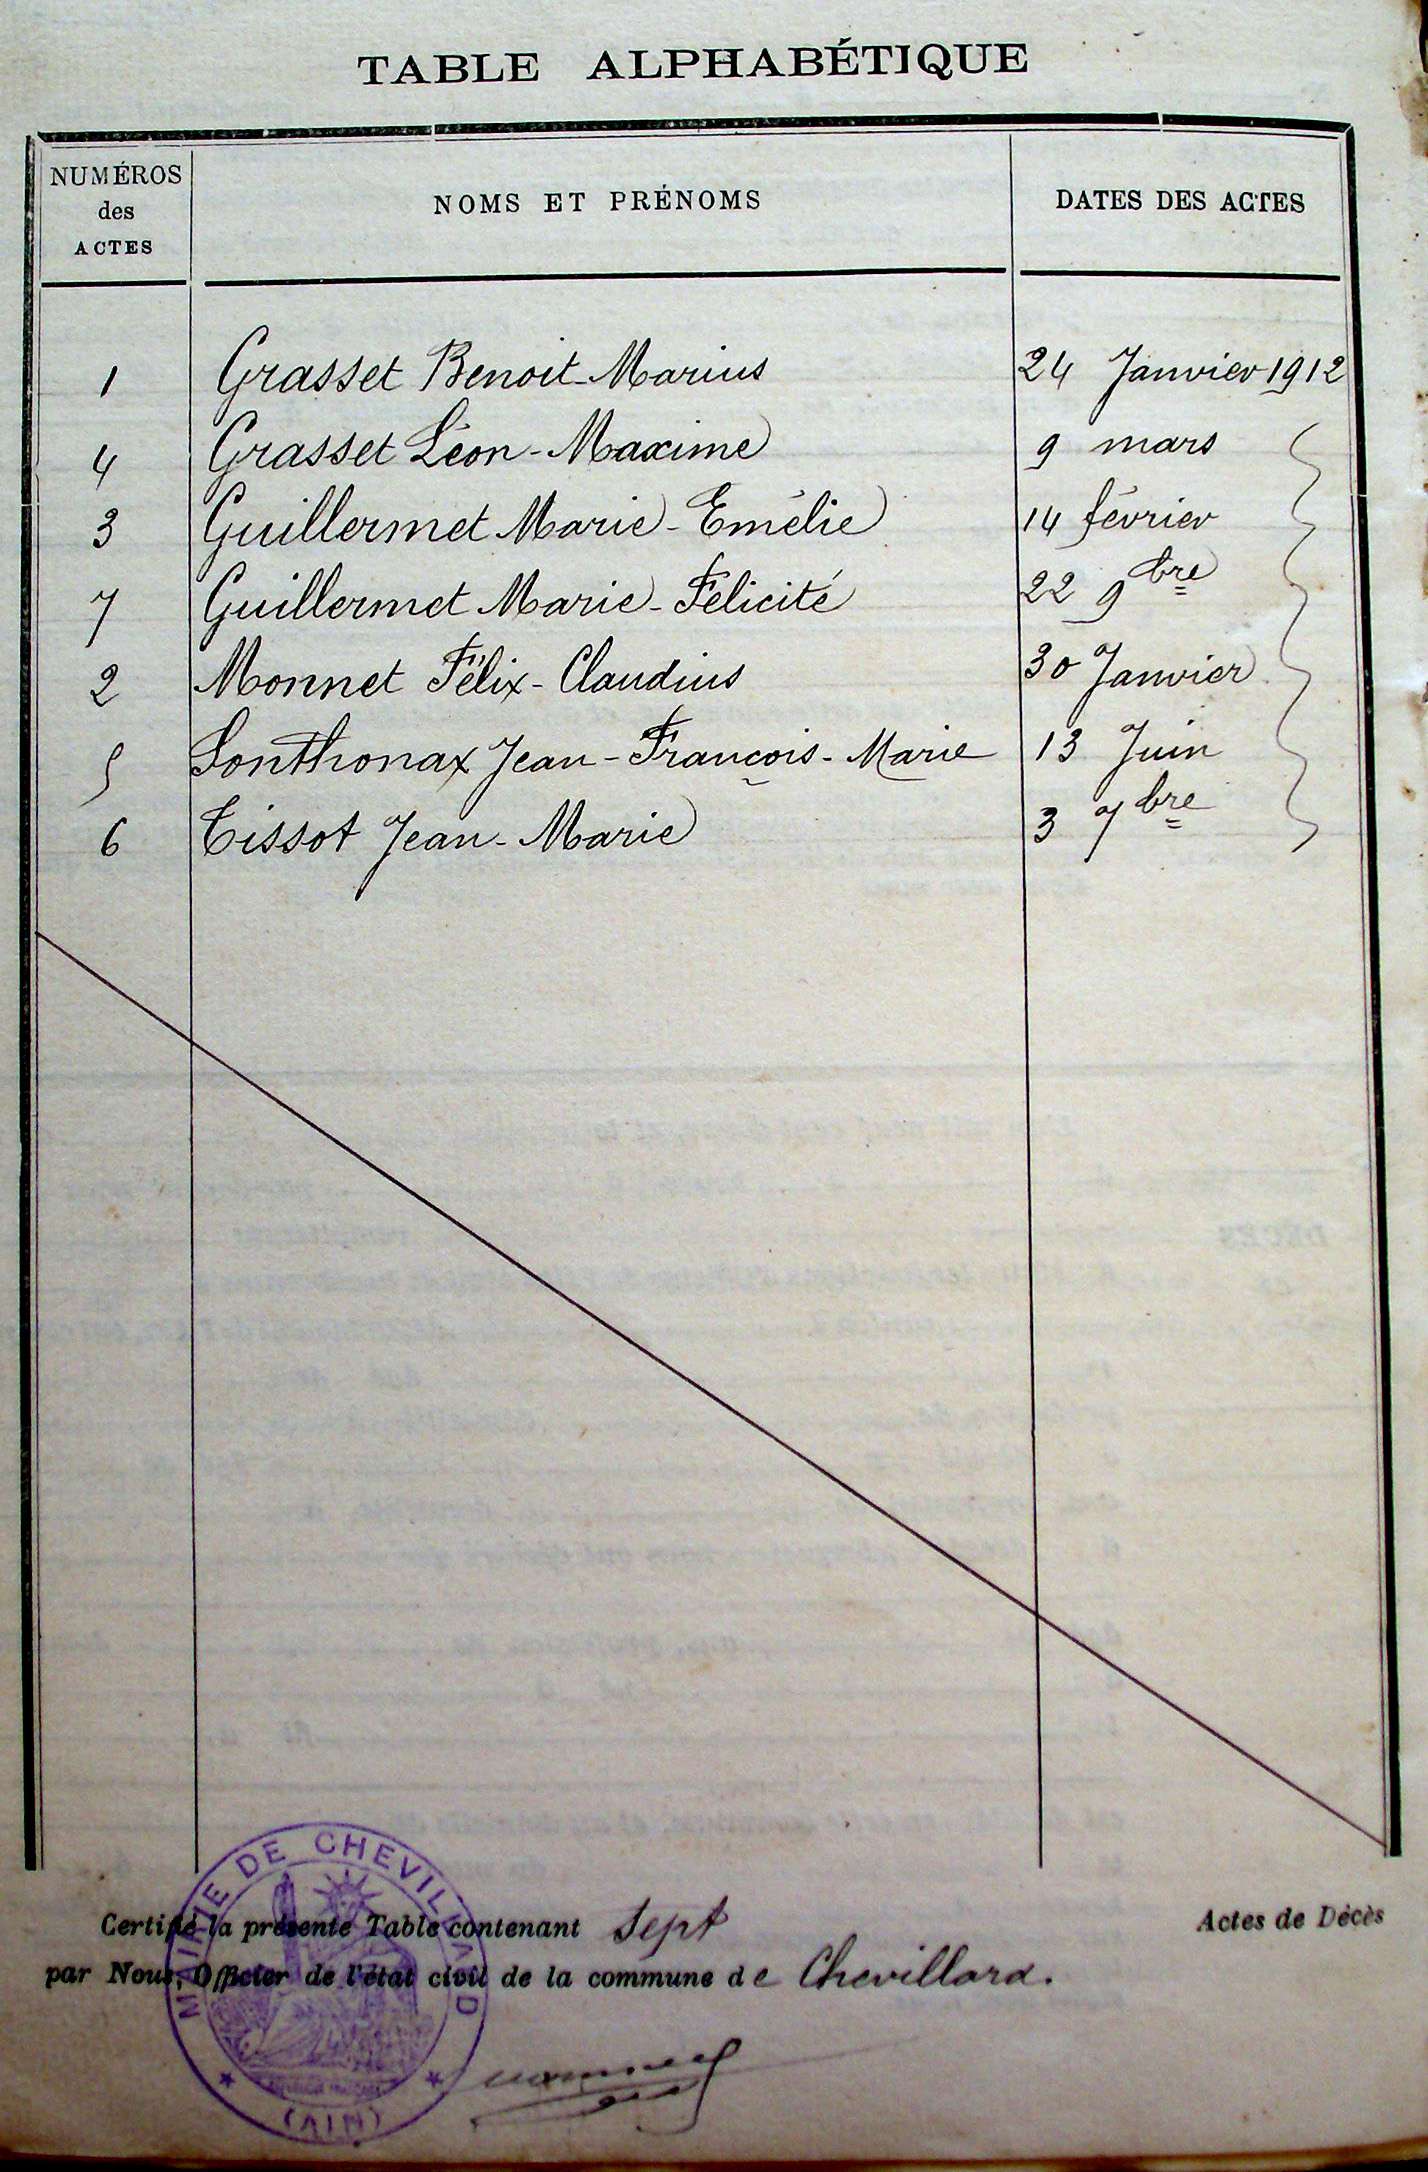 TABLE ALPHABÉTIQUE
NUMÉROS
des
ACTES
NOMS ET PRÉNOMS
DATES DES ACTES
1 Grasset Benoit-Marius 24 Janvier 1912
4 Grasset Léon-Maxime 9 mars
3 Guillermet Marie-Emélie 14 février
7 Guillermet Marie-Félicité 22 9bre
2 Monnet Félix-Claudius 30 Janvier
5 Sonthonax Jean-François-Marie 13 Juin
6 Tissot Jean-Marie 3 7bre
Certifié la présente Table contenant sept Actes de Décès
par Nous, Officier de l'état civil de la commune de Chevillard.
MAIRIE DE CHEVILLARD
(AIN)